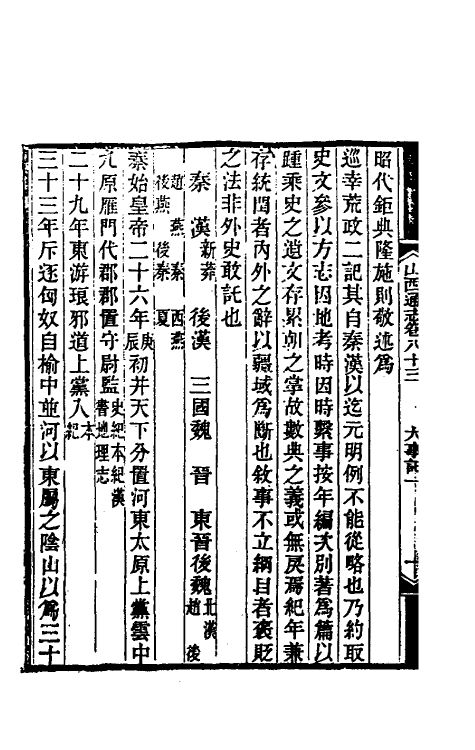 山西通志卷八十三 大事記一 一
昭代鉅典隆施則敬述爲
巡幸荒政二記其自秦漢以迄元明例不能從略也乃約取
史文參以方志因地考時因時繫事按年編次別著爲篇以
踵乘史之遺文存累朝之掌故數典之義或無戾焉紀年兼
存統閏者內外之辭以疆域爲斷也敘事不立綱目者褒貶
之法非外史敢託也
秦 漢新莽 後漢 三國魏 晉 東晉後魏北漢 後趙
趙 燕 後秦 西燕 後燕 秦 夏
秦始皇帝二十六年庚辰初并天下分置河東太原上黨雲中
九原雁門代郡郡置守尉監史紀本紀漢書地理志
二十九年東游琅邪道上黨入本紀
三十三年斥逐匈奴自榆中並河以東屬之陰山以爲三十